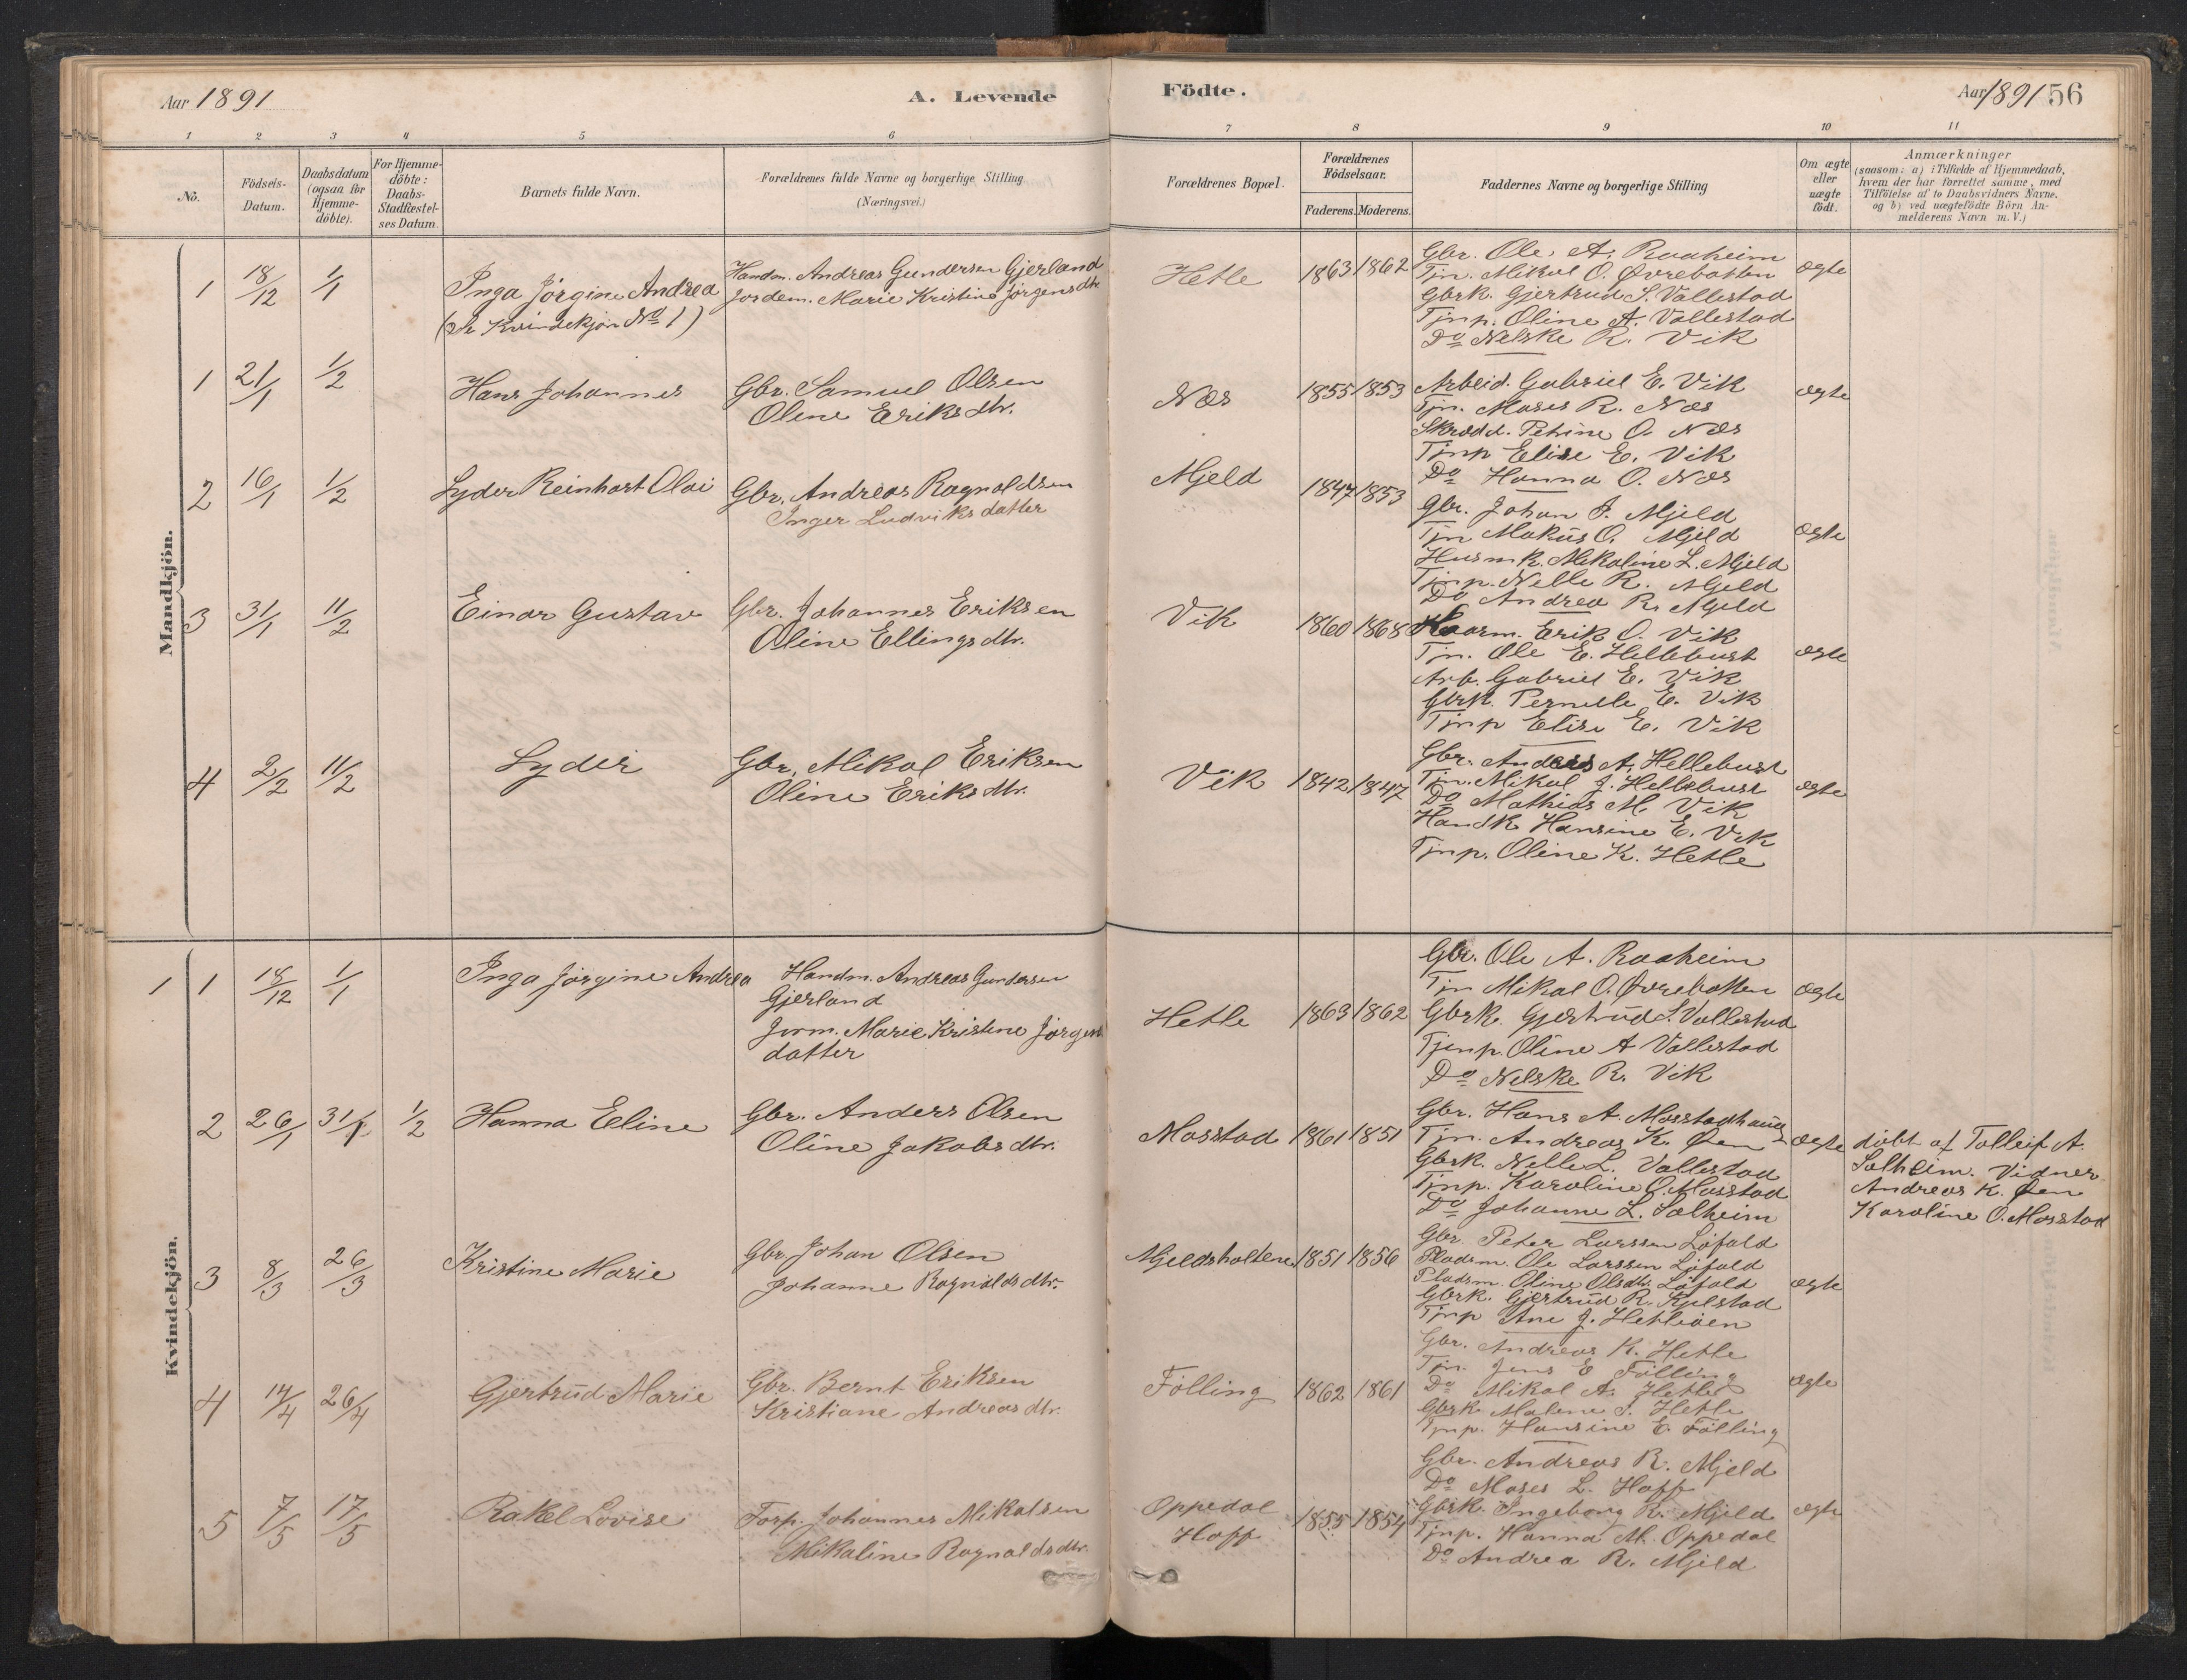 Aar 1891
A. Levende
Födte.
Aar 1891
56
1 2 3 4 5 6 7 8 9 10 11
No.
Födsels-Datum.
Daabsdatum (ogsaa for Hjemme-döbte).
For Hjemme-döbte: Daabs-Stadfæstel-ses Datum.
Barnets fulde Navn.
Forældrenes fulde Navne og borgerlige Stilling (Næringsvei.)
Forældrenes Bopæl.
Forældrenes Födselsaar.
Faderens. Moderens.
Faddernes Navne og borgerlige Stilling
Om ægte eller uægte födt.
Anmærkninger
(saasom: a) i Tilfælde af Hjemmedaab,
hvem der har forrettet samme, med
Tilföielse af to Daabsvidners Navne,
og b) ved uægtefödte Börn An-
melderens Navn m. V.)
Mandkjön.
1 18/12 1/1 Inga Jörgine Andrea
(Se Kvindekjön No 1)
Handm. Andreas Gundersen Gjerland
Jordem. Marie Kristine Jörgensdtr
Hetle 1863 1862
Gbr. Ole A. Raaheim
Tjn. Mikal O. Øvrebotten
Gbrk. Gjertrud S. Vallestad
Tjnp. Oline A. Vallestad
Do Nelske R. Vik
ægte
1 21/1 1/2 Hans Johannes
Gbr. Samuel Olsen
Oline Eriksdtr.
Næs 1855 1853
Arbeid. Gabriel E. Vik
Tjn. Moses R. Næs
Skrædd. Petrine O. Næs
Tjnp Elise E. Vik
Do Hanna O. Næs
ægte
2 16/1 1/2 Lyder Reinhart Olai
Gbr. Andreas Ragnaldsen
Inger Ludviksdatter
Mjeld 1847 1853
Gbr. Johan J. Mjeld
Tjn Makus O. Mjeld
Husmk. Mikaline L. Mjeld
Tjnp. Nelle R. Mjeld
Do Andrea R. Mjeld
ægte
3 31/1 11/2 Einar Gustav
Gbr. Johannes Eriksen
Oline Ellingsdtr.
Vik 1860 1868
Kaarm. Erik O. Vik
Tjn. Ole E. Hellebust
Arb. Gabriel E. Vik
Gbrk. Pernelle E. Vik
Tjnp Elise E. Vik
ægte
4 2/2 11/2 Lyder
Gbr. Mikal Eriksen
Oline Eriksdtr.
Vik 1842 1847
Gbr. Anders A. Hellebust
Tjn. Mikal J. Hellebust
Do Mathias M. Vik
Handk Hansine E. Vik
Tjnp. Oline K. Hetle
ægte
Kvindekjön.
1 1 18/12 1/1 Inga Jörgine Andrea
Handm. Andreas Gundersen
Gjerland
Jorm. Marie Kristine Jörgens
datter
Hetle 1863 1862
Gbr. Ole A. Raaheim
Tjn Mikal O. Øvrebotten
Gbrk. Gjertrud S. Vallestad
Tjenp. Oline A Vallestad
Do Nelske R. Vik
ægte
2 26/1 31/1 1/2 Hanna Eline
Gbr. Anders Olsen
Oline Jakobsdtr.
Masstad 1861 1851
Gbr. Hans A. Masstadhaug
Tjn. Andreas K. Øen
Gbrk. Nelle L. Vallestad
Tjnp. Karoline O. Masstad
Do Johanne L. Sælheim
ægte
döbt af Tolleif A.
Solheim. Vidner
Andreas K. Øen
Karoline O. Masstad
3 8/3 26/3 Kristine Marie
Gbr. Johan Olsen
Johanne Ragnaldsdtr.
Mjeldsholtene 1851 1856
Gbr. Peter Larssen Löfald
Pladsm. Ole Larssen Löfald
Pladsm. Oline Olsdtr. Löfald
Gbrk. Gjertrud R. Kjelstad
Tjnp Ane J. Hetleöen
ægte
4 14/4 26/4 Gjertrud Marie
Gbr. Bernt Eriksen
Kristiane Andreasdtr.
Fölling 1862 1861
Gbr. Andreas K. Hetle
Tjn. Jens E Fölling
Do Mikal A. Hetle
Gbrk. Malene J. Hetle
Tjnp. Hansine E. Fölling
ægte
5 7/5 17/5 Rakel Lovise
Forp. Johannes Mikalsen
Mikaline Ragnaldsdtr.
Oppedal
Hoff
1855 1854
Gbr. Andreas R. Mjeld
Do Moses L. Hoff
Gbrk. Ingeborg R. Mjeld
Tjnp. Hanna M. Oppedal
Do Andrea R. Mjeld
ægte